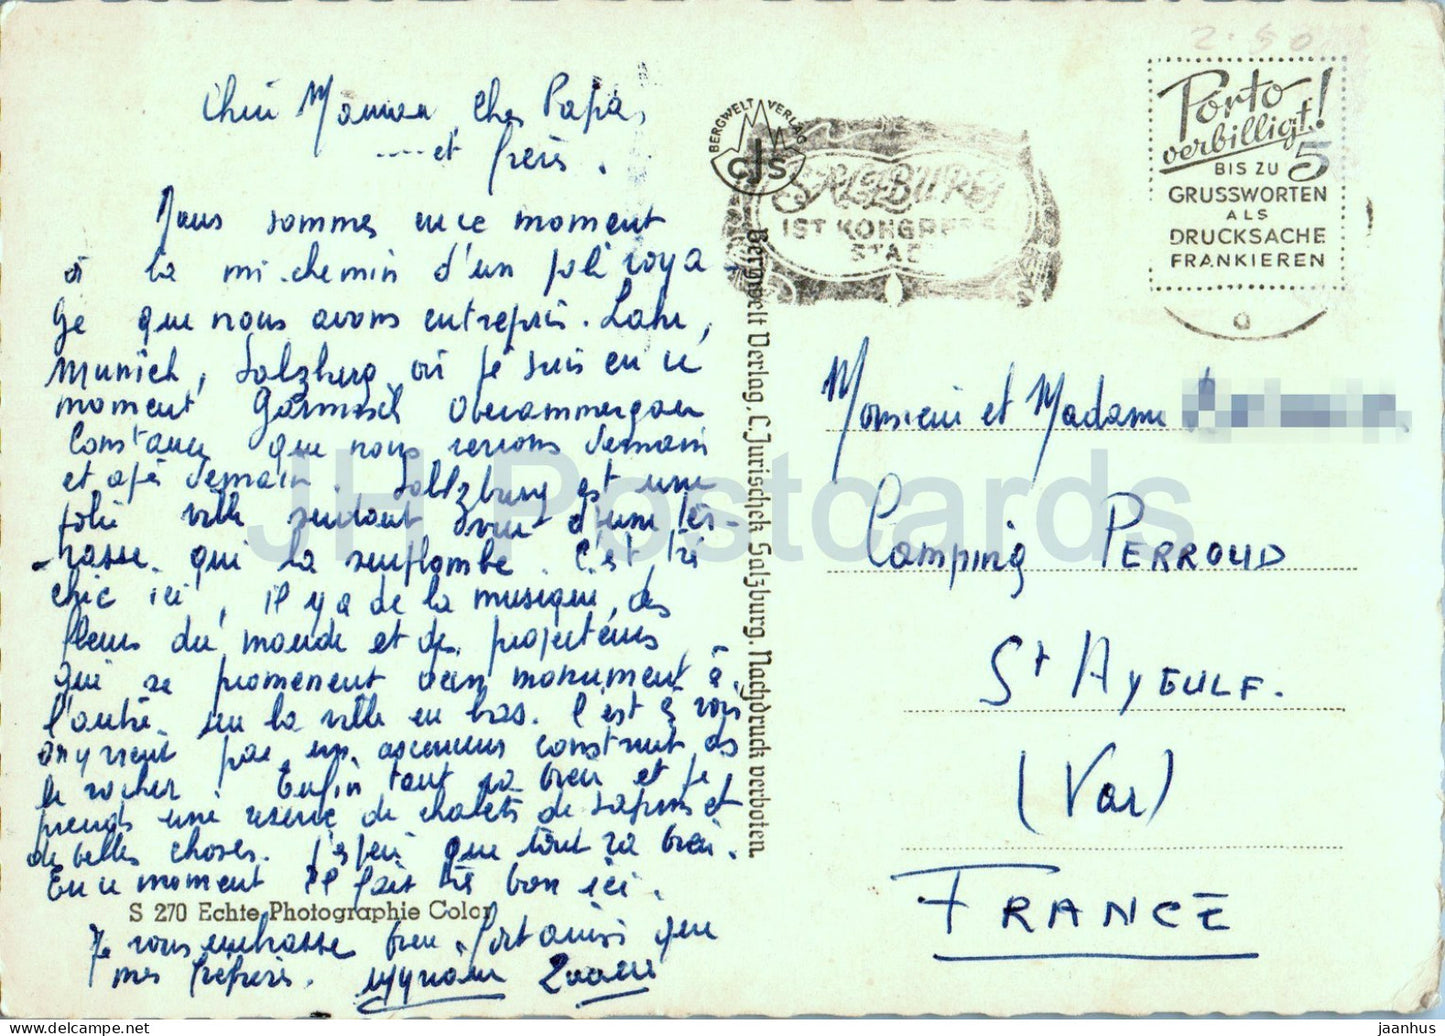 Cher Maman, Cher Papa,
.....et frères.
Nous sommes en ce moment
à la mi-chemin d'un joli voya-
ge que nous avons entrepris. Lahr,
Munich, Salzberg où je suis en ce
moment Garmisch Oberammergau
Constance que nous verrons demain
et après demain. Saltzburg est une
jolie ville surtout vue d'une ter-
rasse qui la surplombe. C'est très
chic ici, il y a de la musique, des
fleurs du monde et des projecteurs
qui se promenent d'un monument à
l'autre sur la ville en bas. C'est à vous
on y vient par un ascenseur construit ds
le rocher! Enfin tout va bien et je
prends une réserve de chalets de sapins et
de belles choses. J'espère que tout va bien.
En ce moment il fait très bon ici.
S 270 Echte Photographie Color
Je vous embrasse bien fort ainsi que
mes frères. Myriam
BERGWELT VERLAG
CJS
SALZBURG
IST KONGRESS
STADT
2.50
Porto
verbilligt!
BIS ZU 5
GRUSSWORTEN
ALS
DRUCKSACHE
FRANKIEREN
Bergwelt Verlag, C. Jurischek, Salzburg. Nachdruck verboten.
Monsieur et Madame
Camping PERROUD
St AYGULF.
(Var)
FRANCE
JH Postcards
eu-delcampe.net
jaanhus